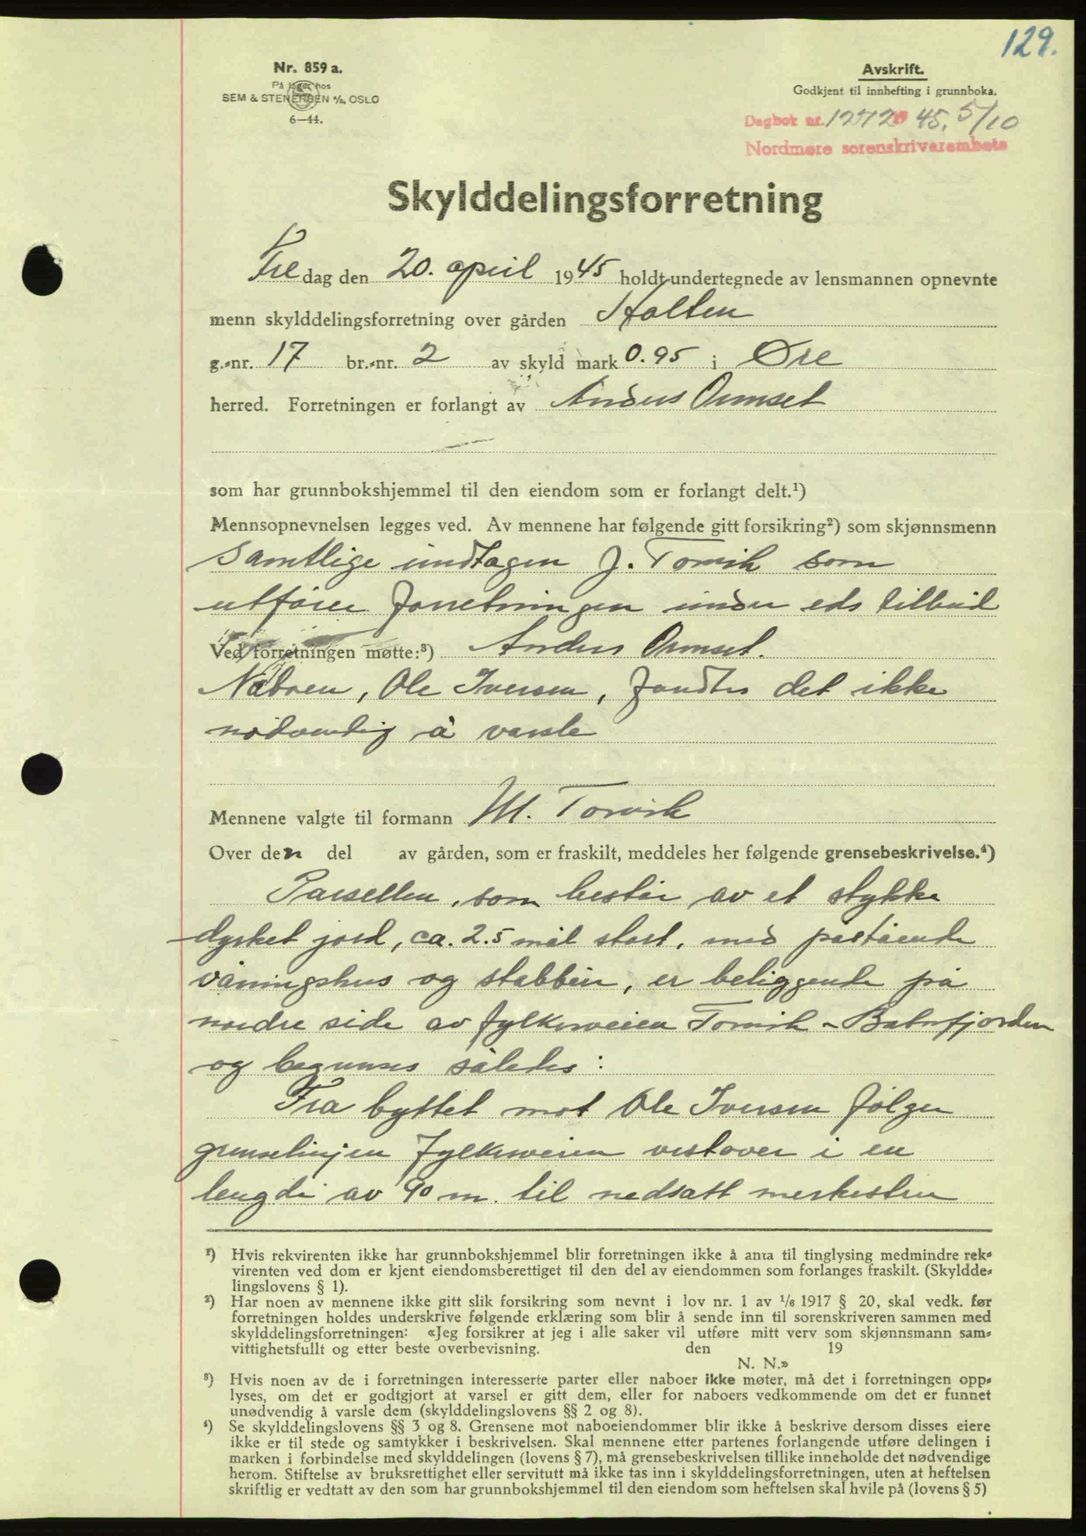 129.
Nr. 859 a.
På lager hos
SEM & STENERSEN A/S, OSLO
6—44.
Avskrift.
Godkjent til innhefting i grunnboka.
Dagbok nr. 1272 19 45, 5/10
Nordmøre sorenskriverembete
Skylddelingsforretning
Fredag den 20. april 1945 holdt undertegnede av lensmannen opnevnte
menn skylddelingsforretning over gården Holten
g.-nr. 17 br.-nr. 2 av skyld mark 0.95 i Øre
herred. Forretningen er forlangt av Anders Ormset
som har grunnbokshjemmel til den eiendom som er forlangt delt.¹)
Mennsopnevnelsen legges ved. Av mennene har følgende gitt forsikring²) som skjønnsmenn
Samtlige undtagen J. Torvik som
utfører forretningen under eds tilbud
Ved forretningen møtte:³) Anders Ormset.
Naboen, Ole Iversen, fandtes det ikke
nødvendig å varsle
Mennene valgte til formann M. Torvik
Over den del av gården, som er fraskilt, meddeles her følgende grensebeskrivelse.⁴)
Parsellen, som består av et stykke
dyrket jord, ca. 2.5 mål stort, med påstående
våningshus og stabbur, er beliggende på
nordre side av fylkesveien Torvik - Batnfjorden
og begrenses således:
Fra byttet mot Ole Iversen følger
grenselinjen fylkesveien vestover i en
lengde av 90 m. til nedsatt merkesten
¹) Hvis rekvirenten ikke har grunnbokshjemmel blir forretningen ikke å anta til tinglysing medmindre rek-
virenten ved dom er kjent eiendomsberettiget til den del av eiendommen som forlanges fraskilt. (Skyldde-
lingslovens § 1).
²) Har noen av mennene ikke gitt slik forsikring som nevnt i lov nr. 1 av 1/6 1917 § 20, skal vedk. før
forretningen holdes underskrive følgende erklæring som blir å sende inn til sorenskriveren sammen med
skylddelingsforretningen: «Jeg forsikrer at jeg i alle saker vil utføre mitt verv som skjønnsmann sam-
vittighetsfullt og etter beste overbevisning. den 19
N. N.»
³) Hvis noen av de i forretningen interesserte parter eller naboer ikke møter, må det i forretningen opp-
lyses, om det er godtgjort at varsel er gitt dem, eller for naboers vedkommende om det er funnet
unødvendig å varsle dem (skylddelingslovens §§ 2 og 8).
⁴) Se skylddelingslovens §§ 3 og 8. Grensene mot naboeiendommer blir ikke å beskrive dersom disses eiere
ikke er til stede og samtykker i beskrivelsen. Skal mennene etter partenes forlangende utføre delingen i
marken i forbindelse med skylddelingen (lovens § 7), må grensebeskrivelsen tillike inneholde det nødvendige
herom. Stiftelse av bruksrettighet eller servitutt må ikke tas inn i skylddelingsforretningen, uten at heftelsen
skriftlig er vedtatt av den som har grunnbokshjemmel til den eiendom som heftelsen skal hvile på (lovens § 5)